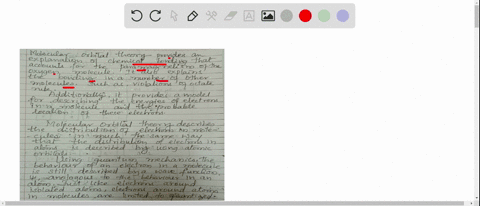 Molecular orbital theory provides an
explanation of chemical bonding that
accounts for the
oxygen molecule. It also explains
the bonding in a number of other
molecules, such as violations of octate
rule.
Additionally, it provides a model
for describing the energies of electrons
in a molecule and the probable
location of these electrons.
Molecular orbital theory describes
the distribution of electrons in mole
cules in much the same way
that the distribution of electrons in
atoms is described by using atomic
orbitals.
Using quantum mechanics, the
behaviour of an electron in a molecule
is still described by a wave function
analogous to the behaviour in an
atom. Just like electrons around
isolated atoms, electrons around atoms
in molecules are limited to